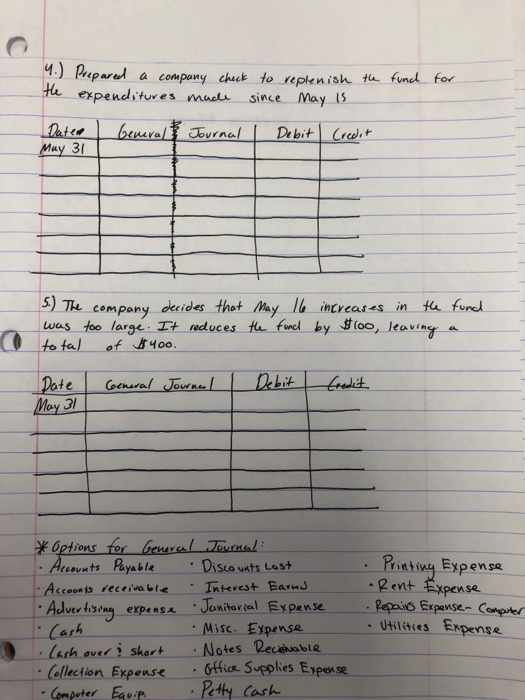 4.) Prepared a company check to replenish the fund for
the expenditures made since May 15
Date General Journal Debit Credit
May 31
5.) The company decides that May 16 increases in the fund
was too large. It reduces the fund by $100, leaving a
total of $400.
Date General Journal Debit Credit
May 31
* Options for General Journal:
· Accounts Payable · Discounts Lost · Printing Expense
· Accounts receivable · Interest Earned · Rent Expense
· Advertising expense · Janitorial Expense · Repairs Expense - Computer
· Cash · Misc. Expense · Utilities Expense
· Cash over & short · Notes Receivable
· Collection Expense · Office Supplies Expense
· Computer Equip. · Petty Cash